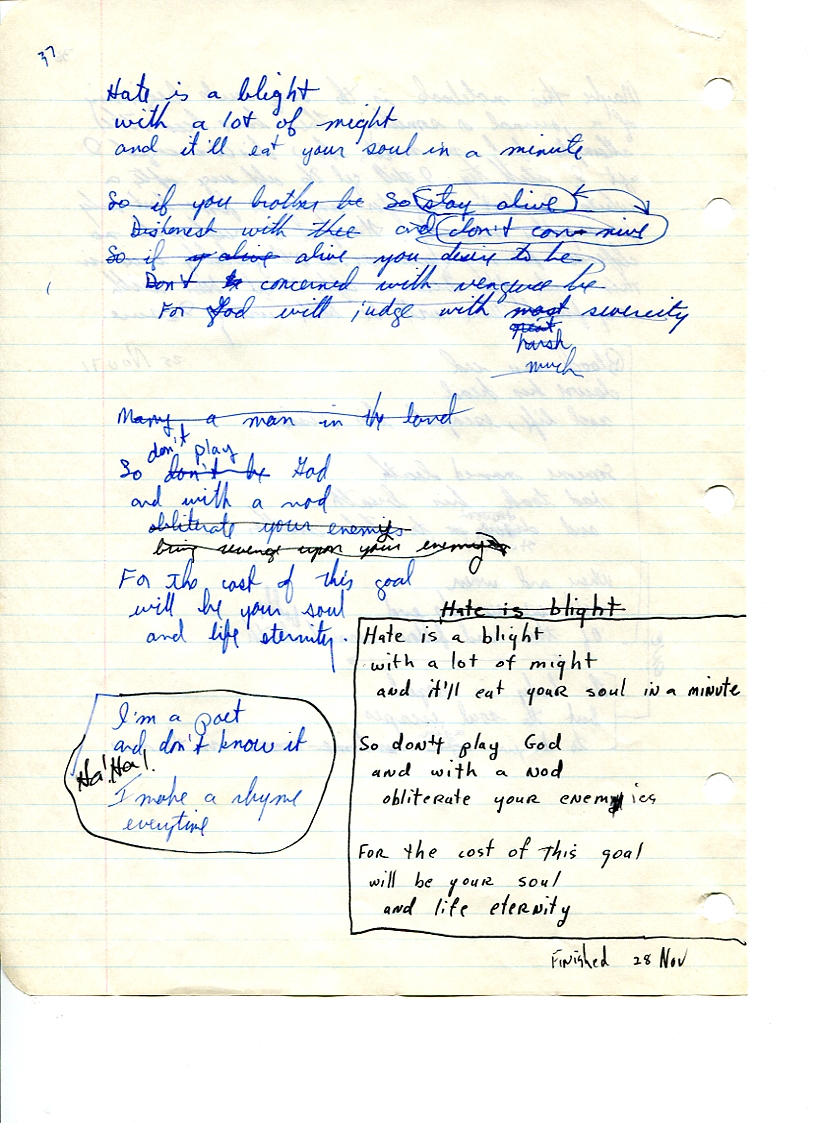 37
Hate is a blight
with a lot of might
and it'll eat your soul in a minute
So if you brother be So stay alive
Dishonest with thee and don't connive
So if alive alive you desire to be
Don't concerned with vengence be
For God will judge with most severity
great
harsh
much
Many a man in the land
don't play
So don't be God
and with a nod
obliterate your enemys
bring revenge upon your enemy
For the cost of this goal
will be your soul
and life eternity.
Hate is blight
Hate is a blight
with a lot of might
and it'll eat your soul in a minute
So don't play God
and with a nod
obliterate your enemies
For the cost of this goal
will be your soul
and life eternity
Finished 28 Nov
I'm a poet
and don't know it
Ha! Ha!
I make a rhyme
everytime